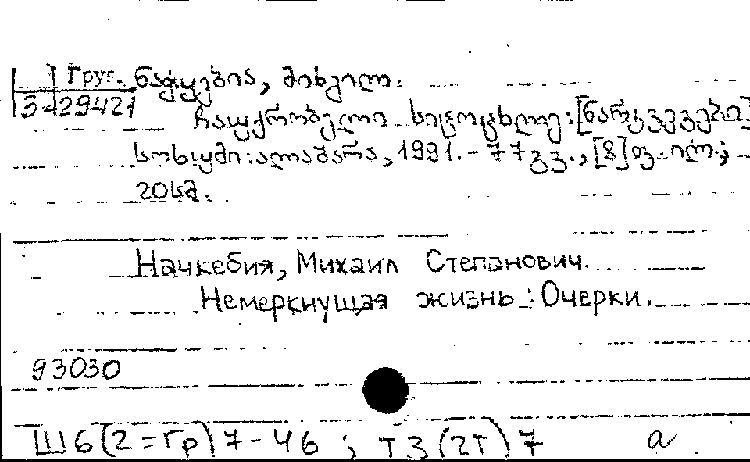 Груз. ნაჭყებია, მიხეილ.
3-29421 ჩაუქრობელი სიცოცხლე: [ნარკვევები]
სოხუმი: ალაშარა, 1991. - 77გვ., [8]ფ. ილ.;
20სმ.
Начкебия, Михаил Степанович.
Немеркнущая жизнь: Очерки.
93030
Ш6(2=Гр)7-46; Т3(2Г)7 а